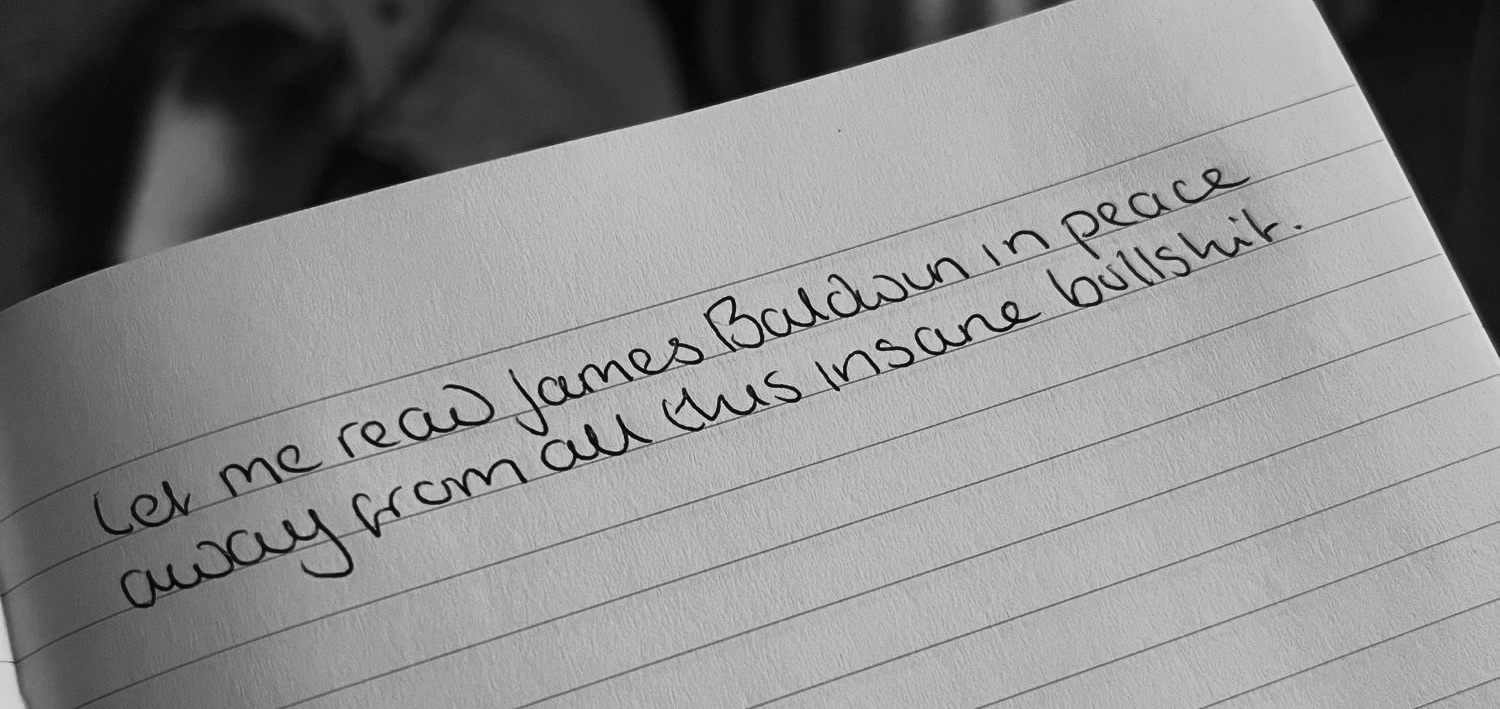 Let me read James Baldwin in peace
away from all this insane bullshit.